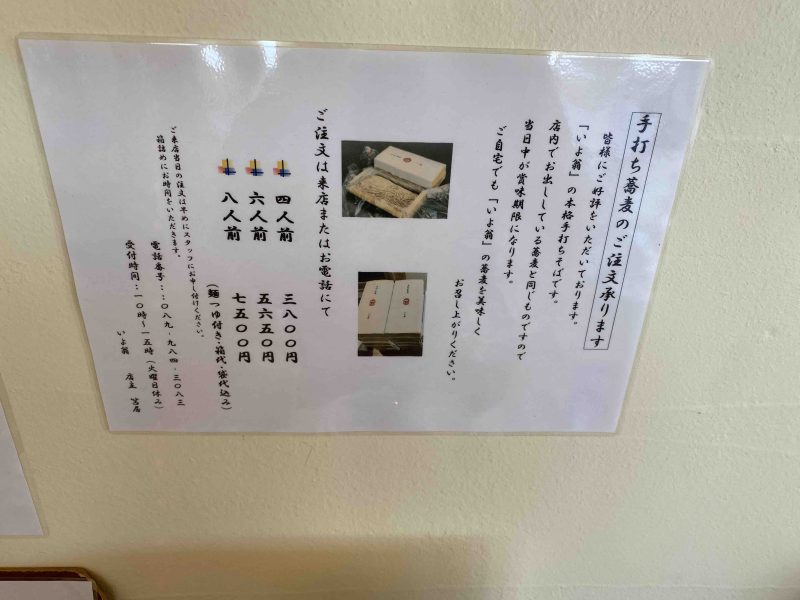 手打ち蕎麦のご注文承ります
皆様にご好評をいただいております。
「いよ翁」の本格手打ちそばです。
店内でお出ししている蕎麦と同じものですので
当日中が賞味期限になります。
ご自宅でも「いよ翁」の蕎麦を美味しく
お召し上がりください。
ご注文は来店またはお電話にて
四人前 三八〇〇円
六人前 五六五〇円
八人前 七五〇〇円
(麺つゆ付き・箱代・袋代込み)
ご来店当日の注文は早めにスタッフにお申し付けください。
箱詰めにお時間をいただきます。
電話番号::〇八九-九八四-三〇八三
受付時間:一〇時〜一五時(火曜日休み)
いよ翁 店主